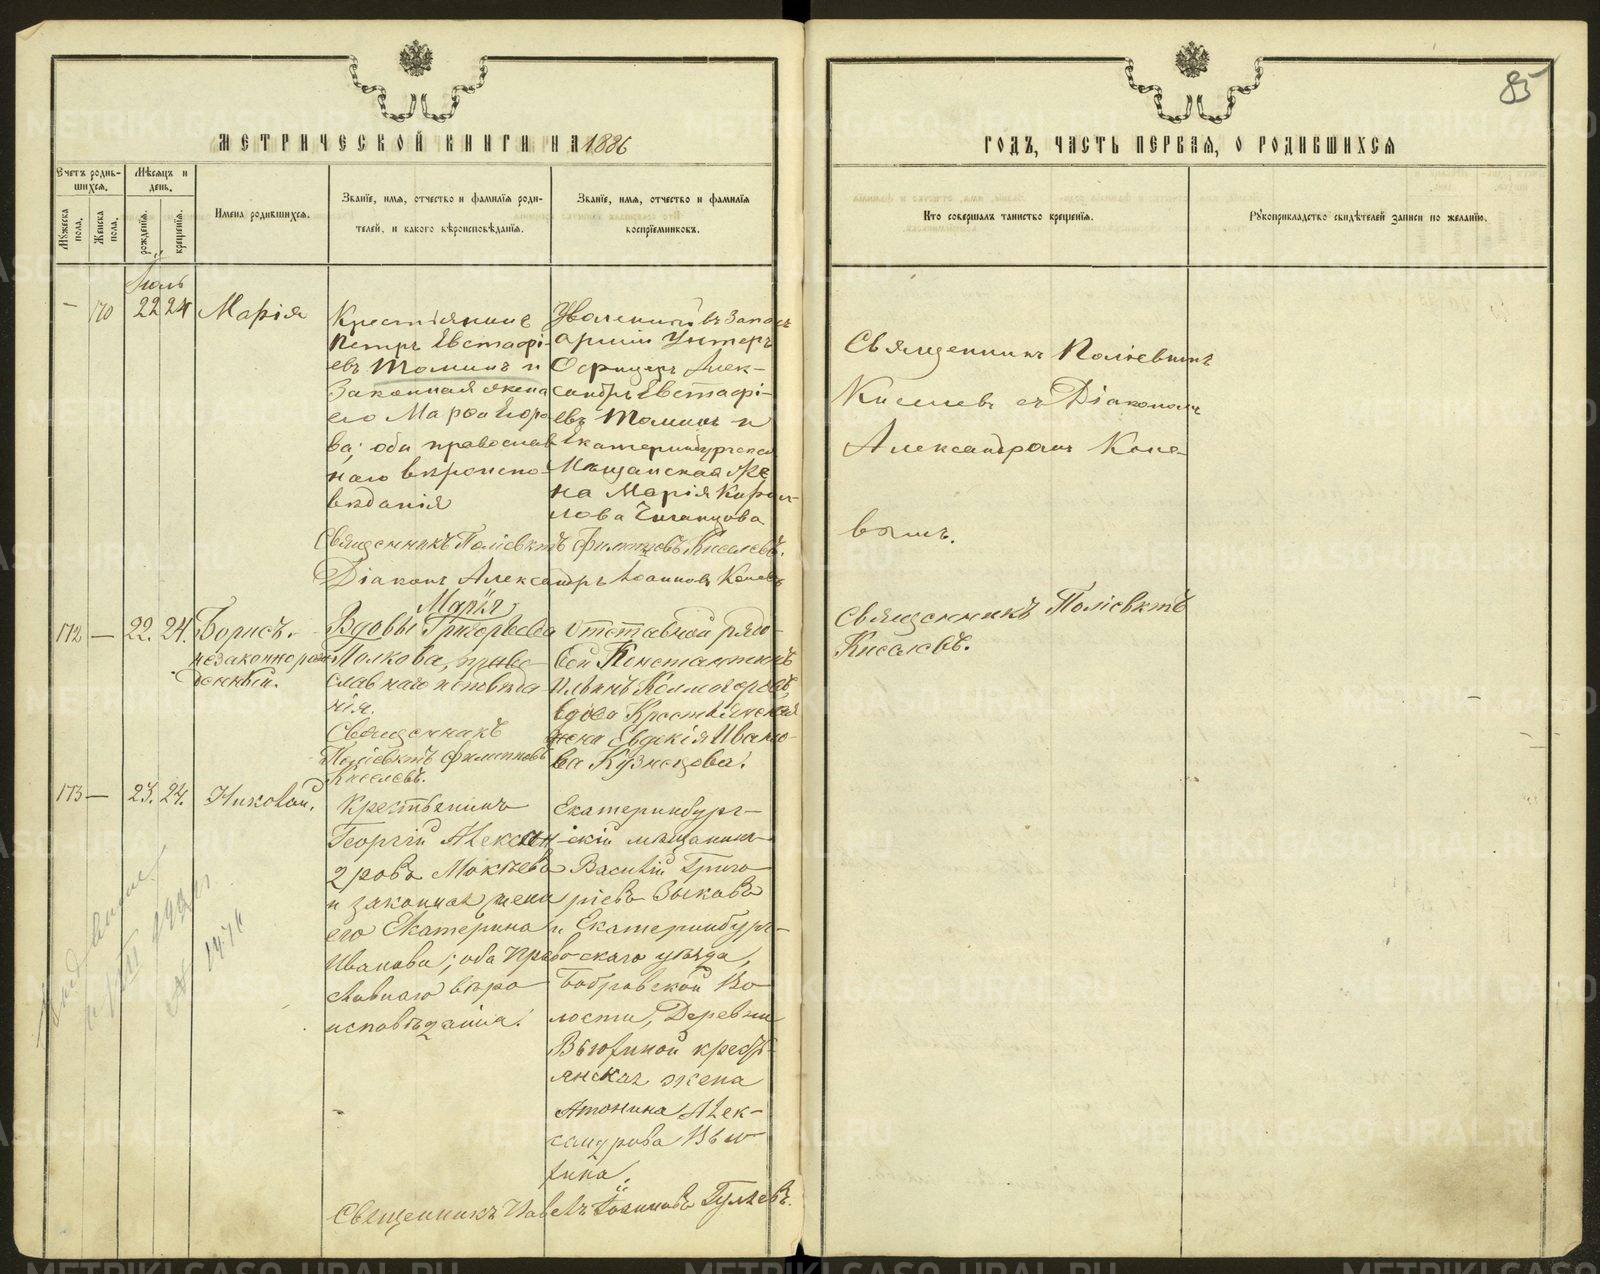 85
МЕТРИЧЕСКОЙ КНИГИ НА 1886
ГОДЪ, ЧАСТЬ ПЕРВАЯ, О РОДИВШИХСЯ
Счетъ родив-
шихся.
Мѣсяцъ и
день.
Мужеска
пола.
Женска
пола.
рожденія.
крещенія.
Имена родившихся.
Званіе, имя, отчество и фамилія роди-
телей, и какого вѣроисповѣданія.
Званіе, имя, отчество и фамилія
воспріемниковъ.
Кто совершалъ таинство крещенія.
Рукоприкладство свидѣтелей записи по желанію.
Іюль
— 170 22 24 Марія
Крестіянинъ
Петръ Евстафі-
евъ Томинъ и
Законная жена
его Марѳа Егоро
ва; оба православ
наго вѣроиспо-
вѣданія
Уволенный въ запасъ
арміи Унтеръ
Офицеръ Алек-
сандръ Евстафі-
евъ Томинъ и
Екатеринбургская
Мѣщанская Же
на Марія Кирил-
лова
Священникъ Поліевктъ Филиповъ Киселевъ.
Діаконъ Александръ Іоанновъ Коневъ
Священникъ Поліевктъ
Киселевъ съ Діакономъ
Александромъ Коне-
вымъ.
172 — 22. 24. Борисъ.
незаконнорож
денный.
Марія
Вдовы Григорьева
Полкова, право
славнаго исповѣда
нія.
Священникъ
Поліевктъ Филиповъ
Киселевъ.
Отставной рядо-
вой Константинъ
Ильинъ Колмогоровъ,
вдова Крестьянская
жена Евдокія Ивано-
ва Кузнецова.
Священникъ Поліевктъ
Киселевъ.
173 — 23. 24. Николай.
Крестьянинъ
Георгій Алексан-
дровъ Мокѣевъ
и законная жена
его Екатерина
Иванова; оба право
славнаго вѣро
исповѣданія.
Екатеринбург-
скій мѣщанинъ
Василій Григо
рьевъ Зыковъ
и Екатеринбург-
скаго уѣзда,
Бобровской Во
лости, Деревни
Вьюхиной кресть-
янская жена
Антонина Алек-
сандрова Вью
хина.
Священникъ Павелъ Іоанновъ Гуляевъ.